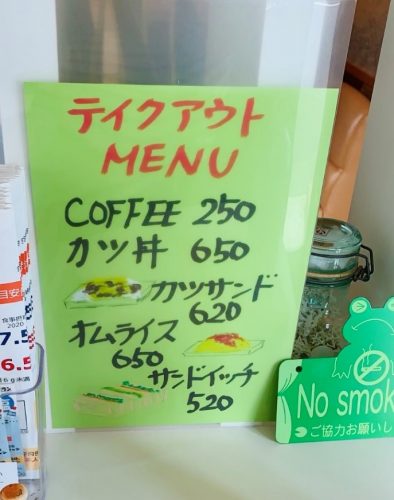 テイクアウト
MENU
COFFEE 250
カツ丼 650
カツサンド
620
オムライス
650
サンドイッチ
520
目安
食事摂
2020
7.5
6.5
No smok
ご協力お願いし